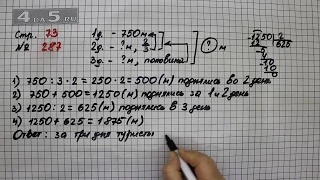 4 ДА 5.RU
Стр. 73
№ 287
1д. - 750м
2д. - ? м, 2/3
3д. - ? м, половина
? м
1250 2
12 625
5
4
10
10
0
1) 750 : 3 · 2 = 250 · 2 = 500 (м) поднялись во 2 день
2) 750 + 500 = 1250 (м) поднялись за 1 и 2 день
3) 1250 : 2 = 625 (м) поднялись в 3 день
4) 1250 + 625 = 1875 (м)
Ответ: за три дня туристы